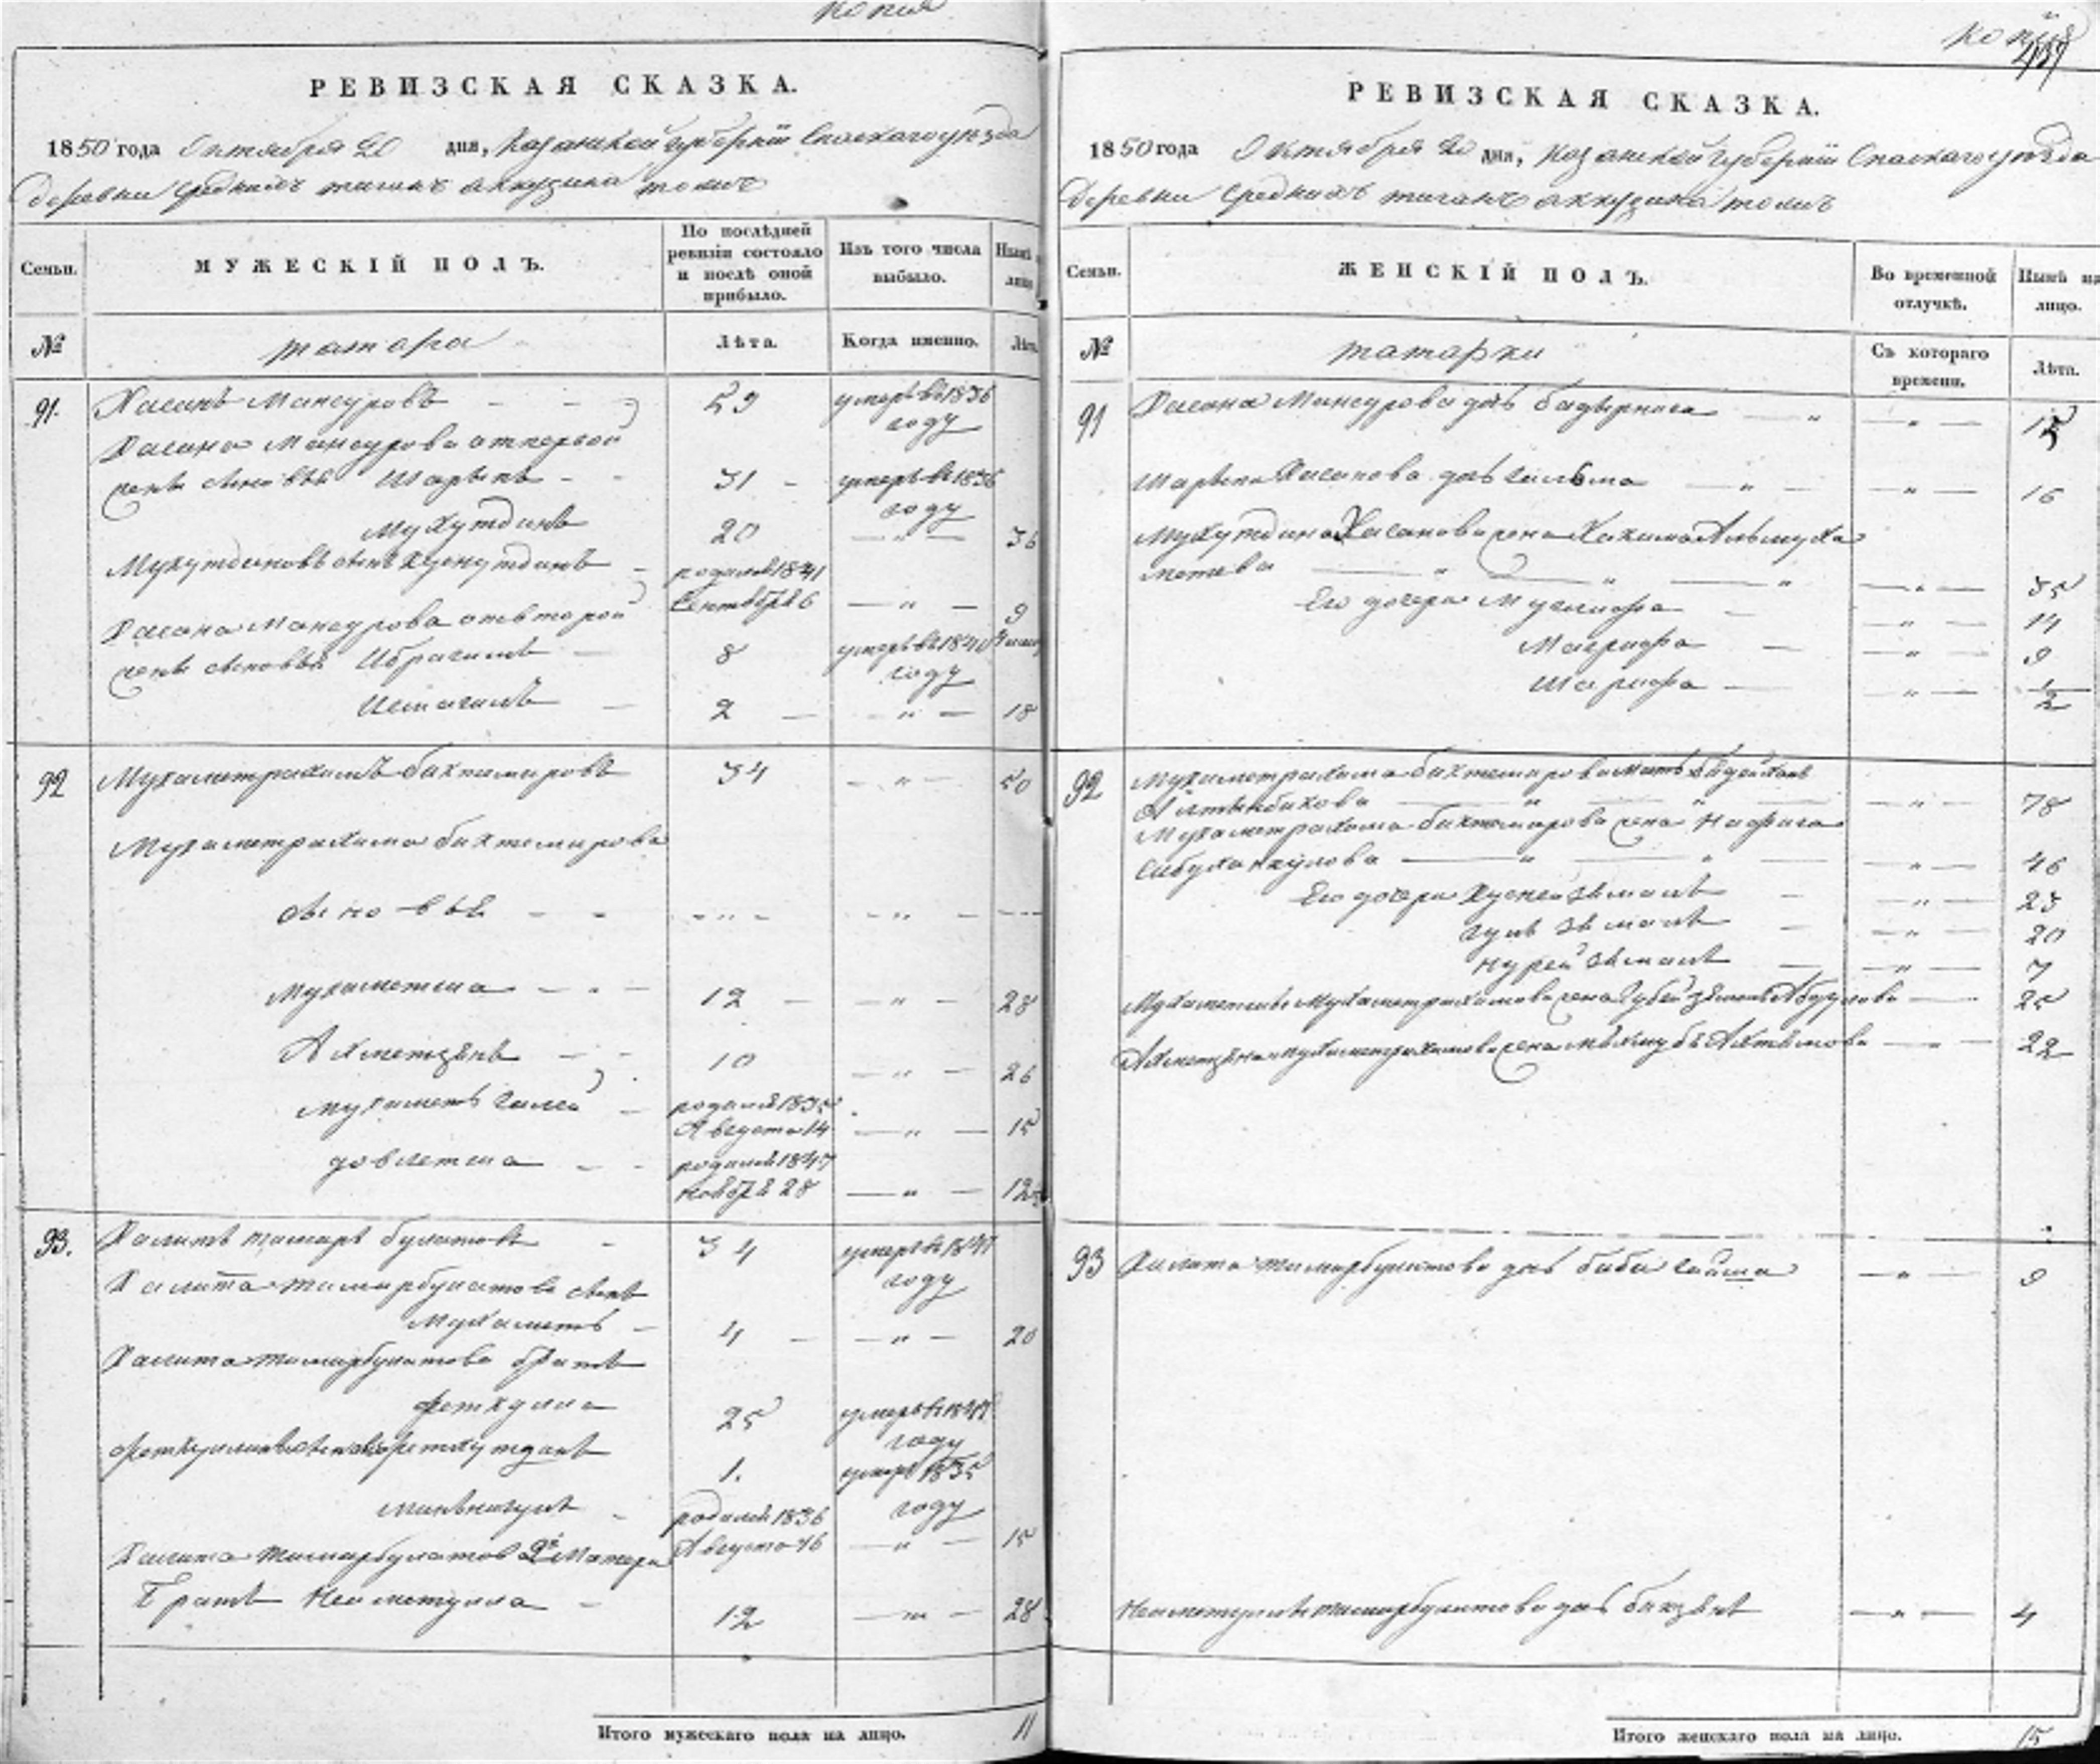 копия
РЕВИЗСКАЯ СКАЗКА.
1850 года Октября 20 дня, Казанской губернии Спаскаго уезда
деревни Средних тиган аккузина тож
Семьи. МУЖЕСКІЙ ПОЛЪ. По послѣдней ревизіи состояло и послѣ оной прибыло. Изъ того числа выбыло. Нынѣ лицо
№ татара Лѣта. Когда именно. Лѣта
91. Хасанъ Мансуровъ 59 умеръ въ 1836 году
Хасана Мансурова отпервой
жены сыновья Шарыпъ 31 умеръ въ 1836 году
Мухутдинъ 20 — " — 36
Мухутдиновъ сынъ Хуснутдинъ родился 1841 Сентября 6 — " — 9
Хасана Мансурова отвторой
жены сыновья Ибрагимъ 8 умеръ въ 1840 году
Исмагилъ 2 — " — 18
92 Мухаметрахимъ бихтемировъ 34 — " — 50
Мухаметрахима бихтемирова
сыновья
Мухаметша 12 — " — 28
Ахметзянъ 10 — " — 26
Мухаметъ Галей родился 1835 Августа 14 — " — 15
довлетша родился 1847 ноября 28 — " —
93. Халитъ тимиръ булатовъ 34 умеръ въ 1841 году
Халита тимирбулатова сынъ
Мухаметъ 4 — " — 20
Халита тимирбулатова братъ
феткулла 25 году
феткуллинъ сынъ феткутдинъ 1. умеръ 1835 году
Миннигулъ родился 1836 Августа 16 — " — 15
Халита тимирбулатова 2й Матери
Братъ Неиметулла 12 — " — 28
Итого мужескаго пола на лицо. 11
копия
РЕВИЗСКАЯ СКАЗКА.
1850 года Октября 20 дня, Казанской губернии Спаскаго уезда
деревни Средних тиган аккузина тож
Семьи. ЖЕНСКІЙ ПОЛЪ. Во временной отлучкѣ. Нынѣ на лицо.
№ татарки Съ котораго времени. Лѣта.
91 Хасана Мансурова дчь — " — 15
Шарыпа Хасанова дчь — " — 16
Мухутдина Хасанова жена Хакима Альмуха
метева — " — 35
Его дочери Муслифа — " — 14
Магрифа — " — 9
Шарифа — " — 1/2
92 Мухаметрахима бихтемирова мать
Алтынбикова — " — 78
Мухаметрахима бихтемирова жена Нафиса
— " — 46
Его дочери Хуснейземалъ — " — 23
гуль земалъ — " — 20
нурей земалъ — " — 7
Мухаметши Мухаметрахимова жена — " — 25
Ахметзяна Мухаметрахимова жена — " — 22
93 Халита тимирбулатова дчь биби гайша — " — 9
Неиметуллы тимирбулатова дчь — " — 4
Итого женскаго пола на лицо. 15